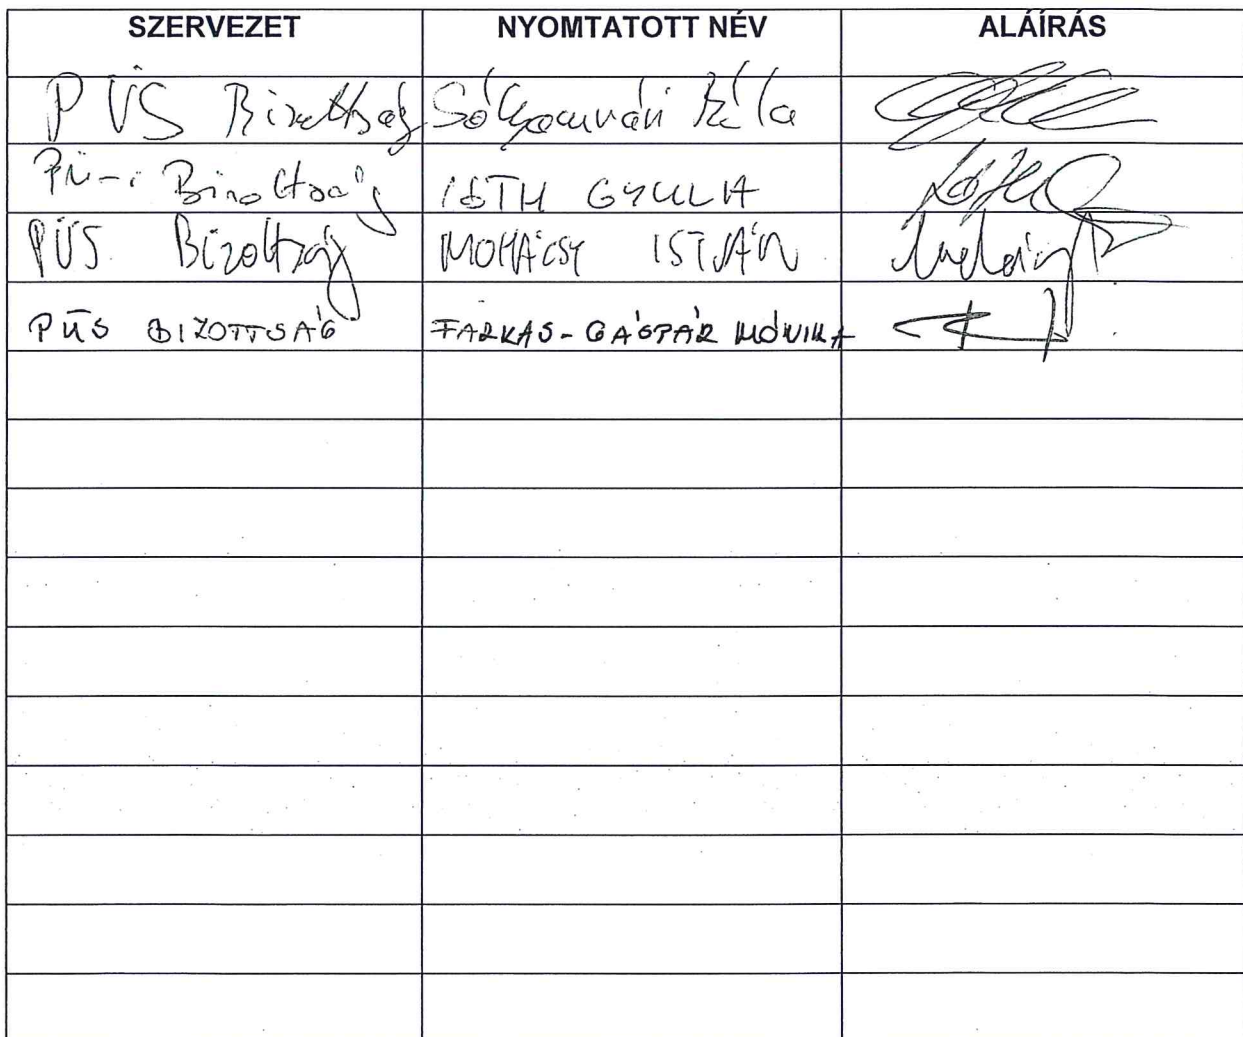 SZERVEZET NYOMTATOTT NÉV ALÁÍRÁS
PÜS Bizottság Sólyomvári Béla
Bizottság TÓTH GYULA
PÜS Bizottság MOHÁCSY ISTVÁN
PÜS BIZOTTSÁG FARKAS-GÁSPÁR MÓNIKA